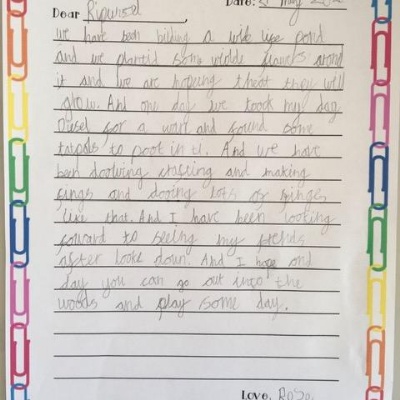 Date: May
Dear
we have been bilding a wild life pond
and we planted some wilde flowers arong
it and we are hopeing theat they will
grow. And one day we toock my dog
Diesel for a worc and found some
tatpols to poot in it. And we have
been doolwing craficing and making
fings and dooing lots of fhinges
like that. And I have been looking
forward to seeing my friends
after lock down. And I hope and
day you can go out into the
woods and play some day.
Love, Rose